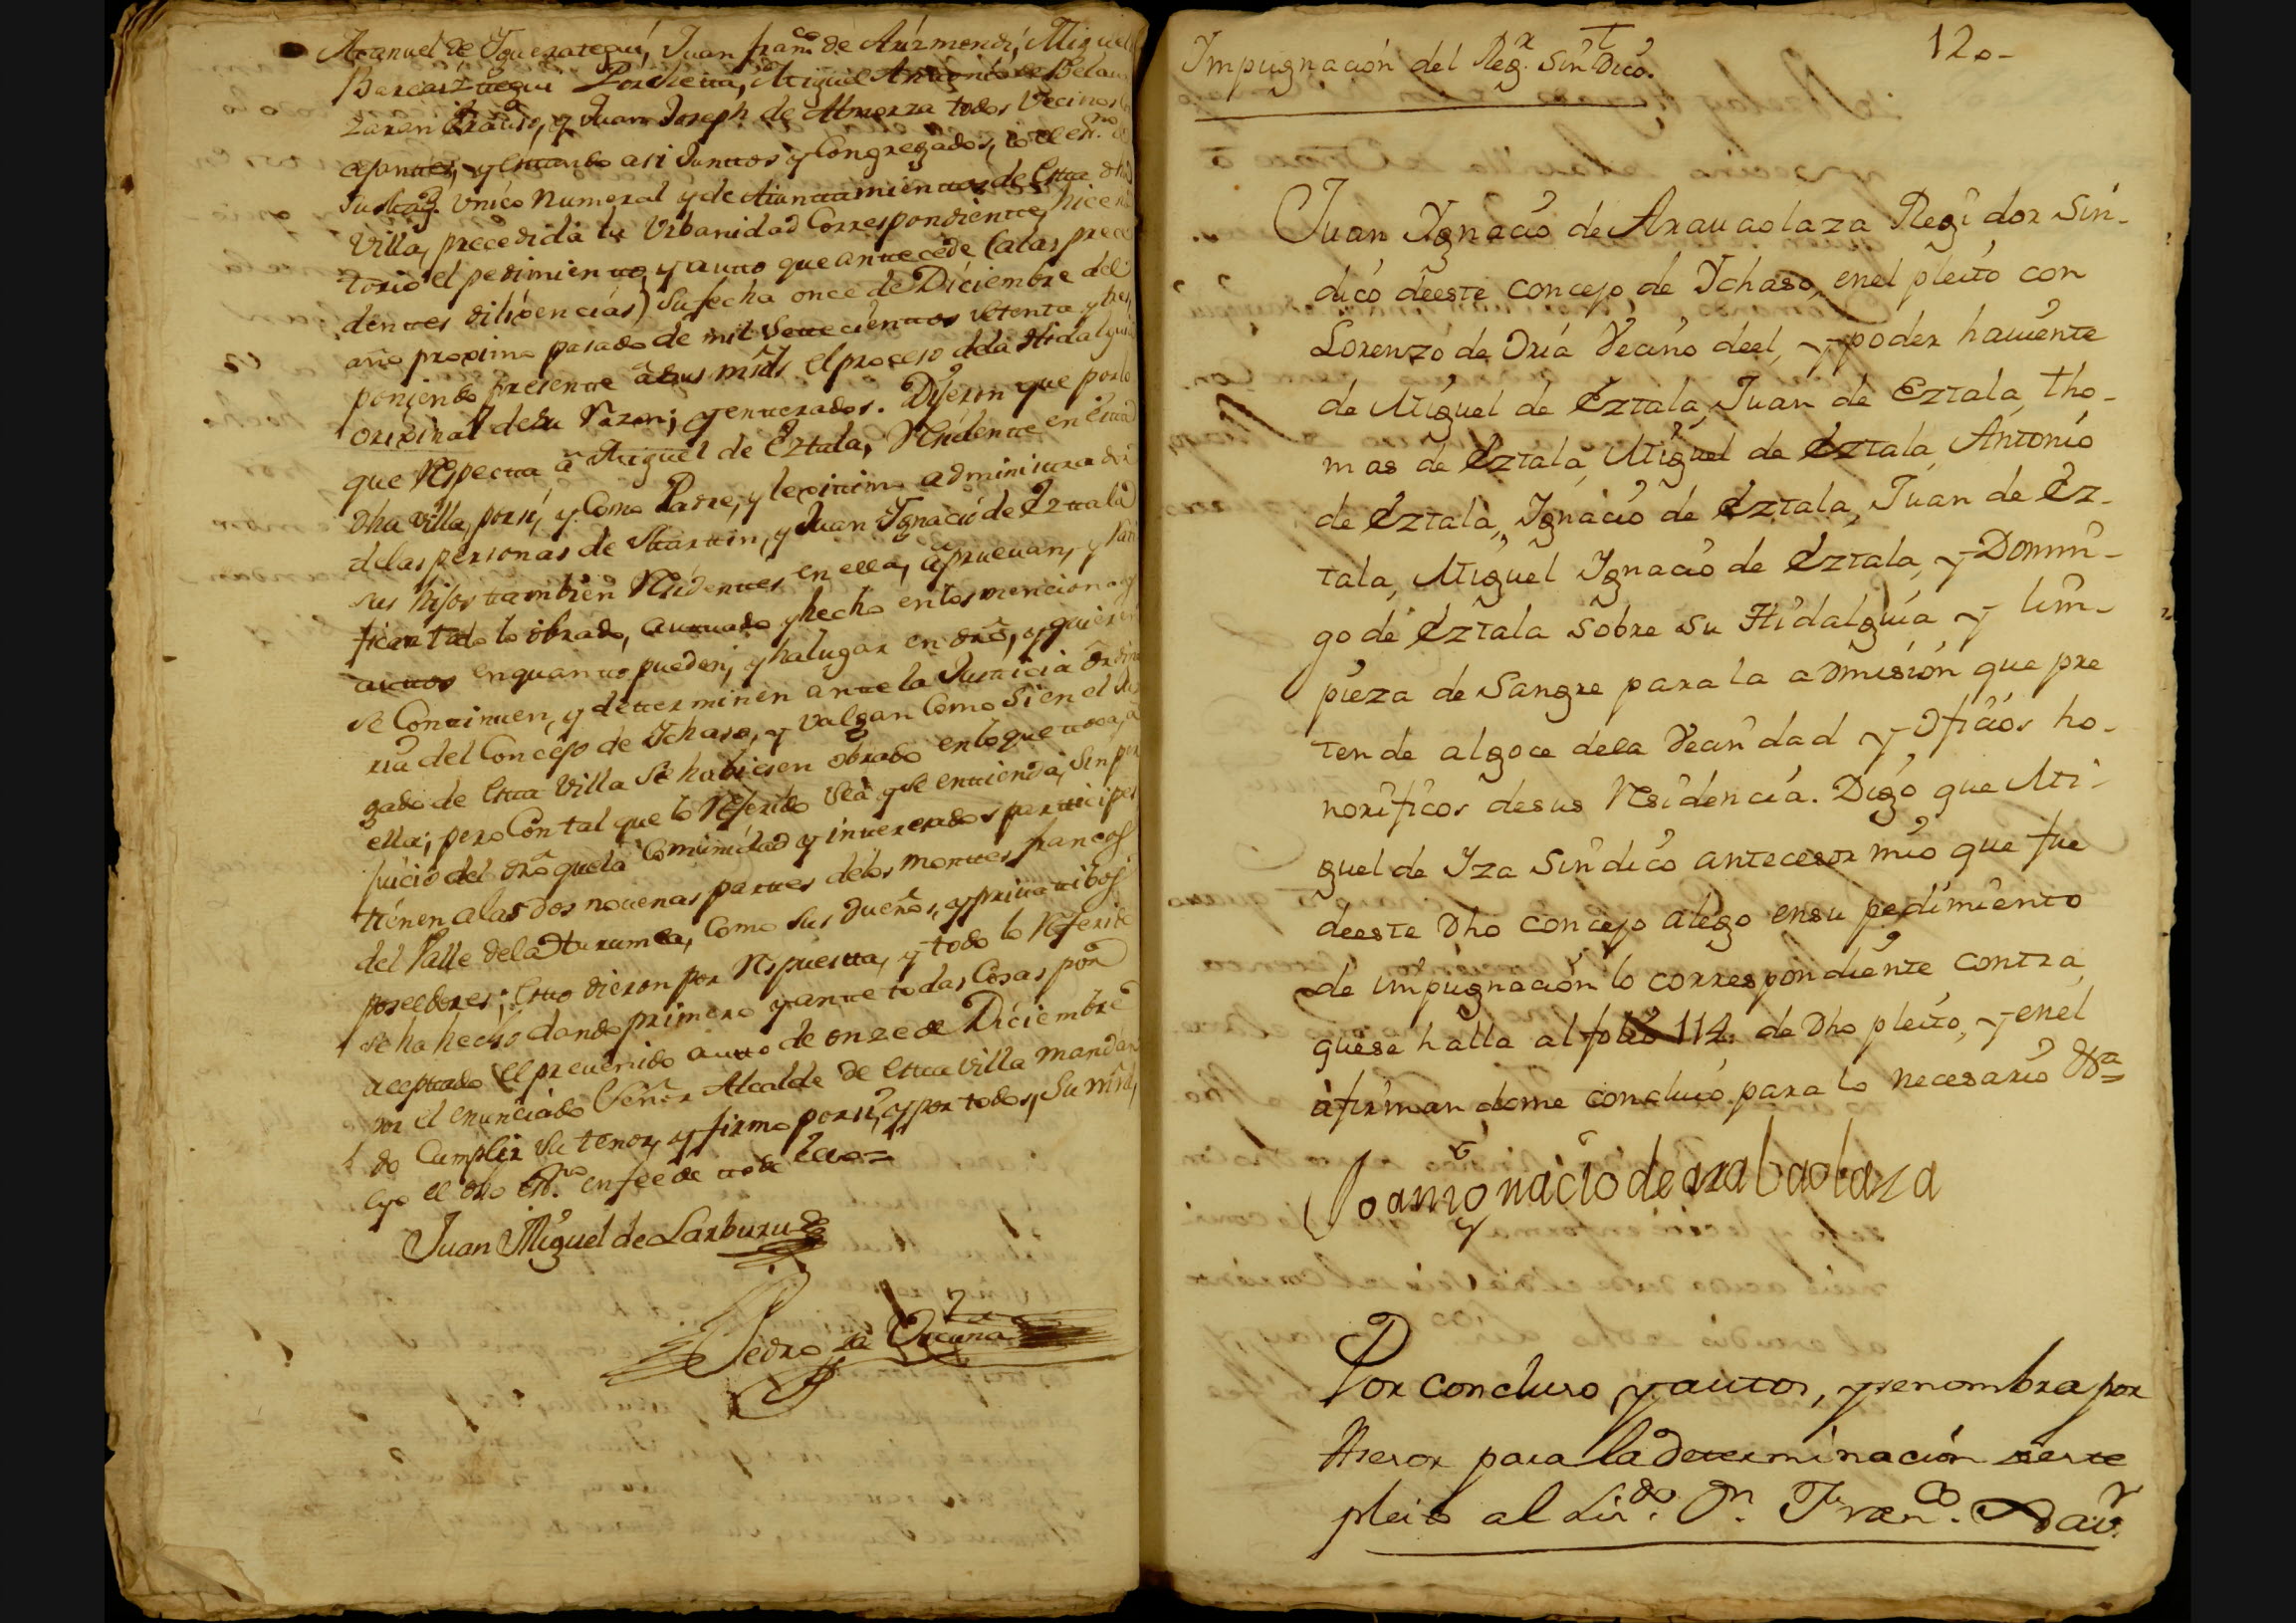 Manuel de Iguerategui, Juan fran.co de Arizmendi, Miguel
Barcaiztegui Miguel Antonio de Belaun
zaran y Juan Joseph de Almorza todos Vecinos
y estando asi Junttos y Congregados, io el es.no
Unico Numeral y de Aiunttamienttos de Estta dha
Villa, precedida la Urbanidad Correspondientte, hice no
torio el pedimientto y autto que anttecede (a las prece
denttes diligencias) Su fecha once de Diciembre del
año proximo pasado de mil Settecienttos Settenta y tres
poniendo presentte â sus mrds. el proceso de la Hidalguia
original de su razon; y entterados. Dijeron que por lo
que respectta â Miguel de Eztala, residentte en Estta
dha villa, por si, y Como Padre, y lexitimo administtrador
de las personas de Marttin, y Juan Ignacio de Izttala
sus hijos ttambien residenttes en ella, âpruevan, y rati
fican todo lo obrado, auttuado y hecho en los mencionados
auttos en quantto pueden, y ha lugar en dro, y quieren
se Continuen, y detterminen antte la Justticia Ordina
ria del Concejo de Ichaso, y valgan Como Si en el Juz
gado de Estta Villa Se hubiesen obrado en lo que ttoca, a
ella; pero Con tal que lo referido Sea y Se enttienda, Sin per
juicio del dro que la Comunidad y intteresados partticipes
ttienen a las dos novenas parttes de los Monttes francos
del Valle de la Hurumea, Como Sus dueños, y privattibos
poseedores; Estto dieron por respuestta, y todo lo referido
se ha hecho dando primero y antte todas Cosas por
aceptado el prevenido autto de onze de Diciembre
por el enunciado Señor Alcalde de Estta Villa mandan
do Cumplir Su tenor, y firmo por si, y por todos, Su mrd,
e yo el dho es.no en fee de ttodo ello=
Juan Miguel de Larburu
Pedro de
Impugnacion del Reg.r Sindico.
120-
Juan Ygnacio de Arauaolaza Regidor Sin-
dico deeste concejo de Ychaso, enel pleito con
Lorenzo de Oria Vecino deel, y poder hauiente
de Miguel de Eztala, Juan de Eztala, Tho-
mas de Eztala, Miguel de Eztala, Antonio
de Eztala, Ygnacio de Eztala, Juan de Ez-
tala, Miguel Ygnacio de Eztala, y Domin-
go de Eztala sobre su Hidalguia y lim-
pieza de Sangre para la admision que pre
tende algoce dela Vecindad y Oficios ho-
norificos desus residencia. Digo que Mi-
guel de Yza Sindico antecesor mio que fue
deeste Dho concejo alego ensu pedimiento
de impugnacion lo correspondiente contra
quese halla al folio 114. de Dho pleito, y enel
afirmandome concluio para lo necesario &a=
Joan ygnacio de arabaolaza
Por concluso y autos, y se nombra por
Asesor para la determinacion deste
pleito al Liz.do D.n Fran.co Xav.r